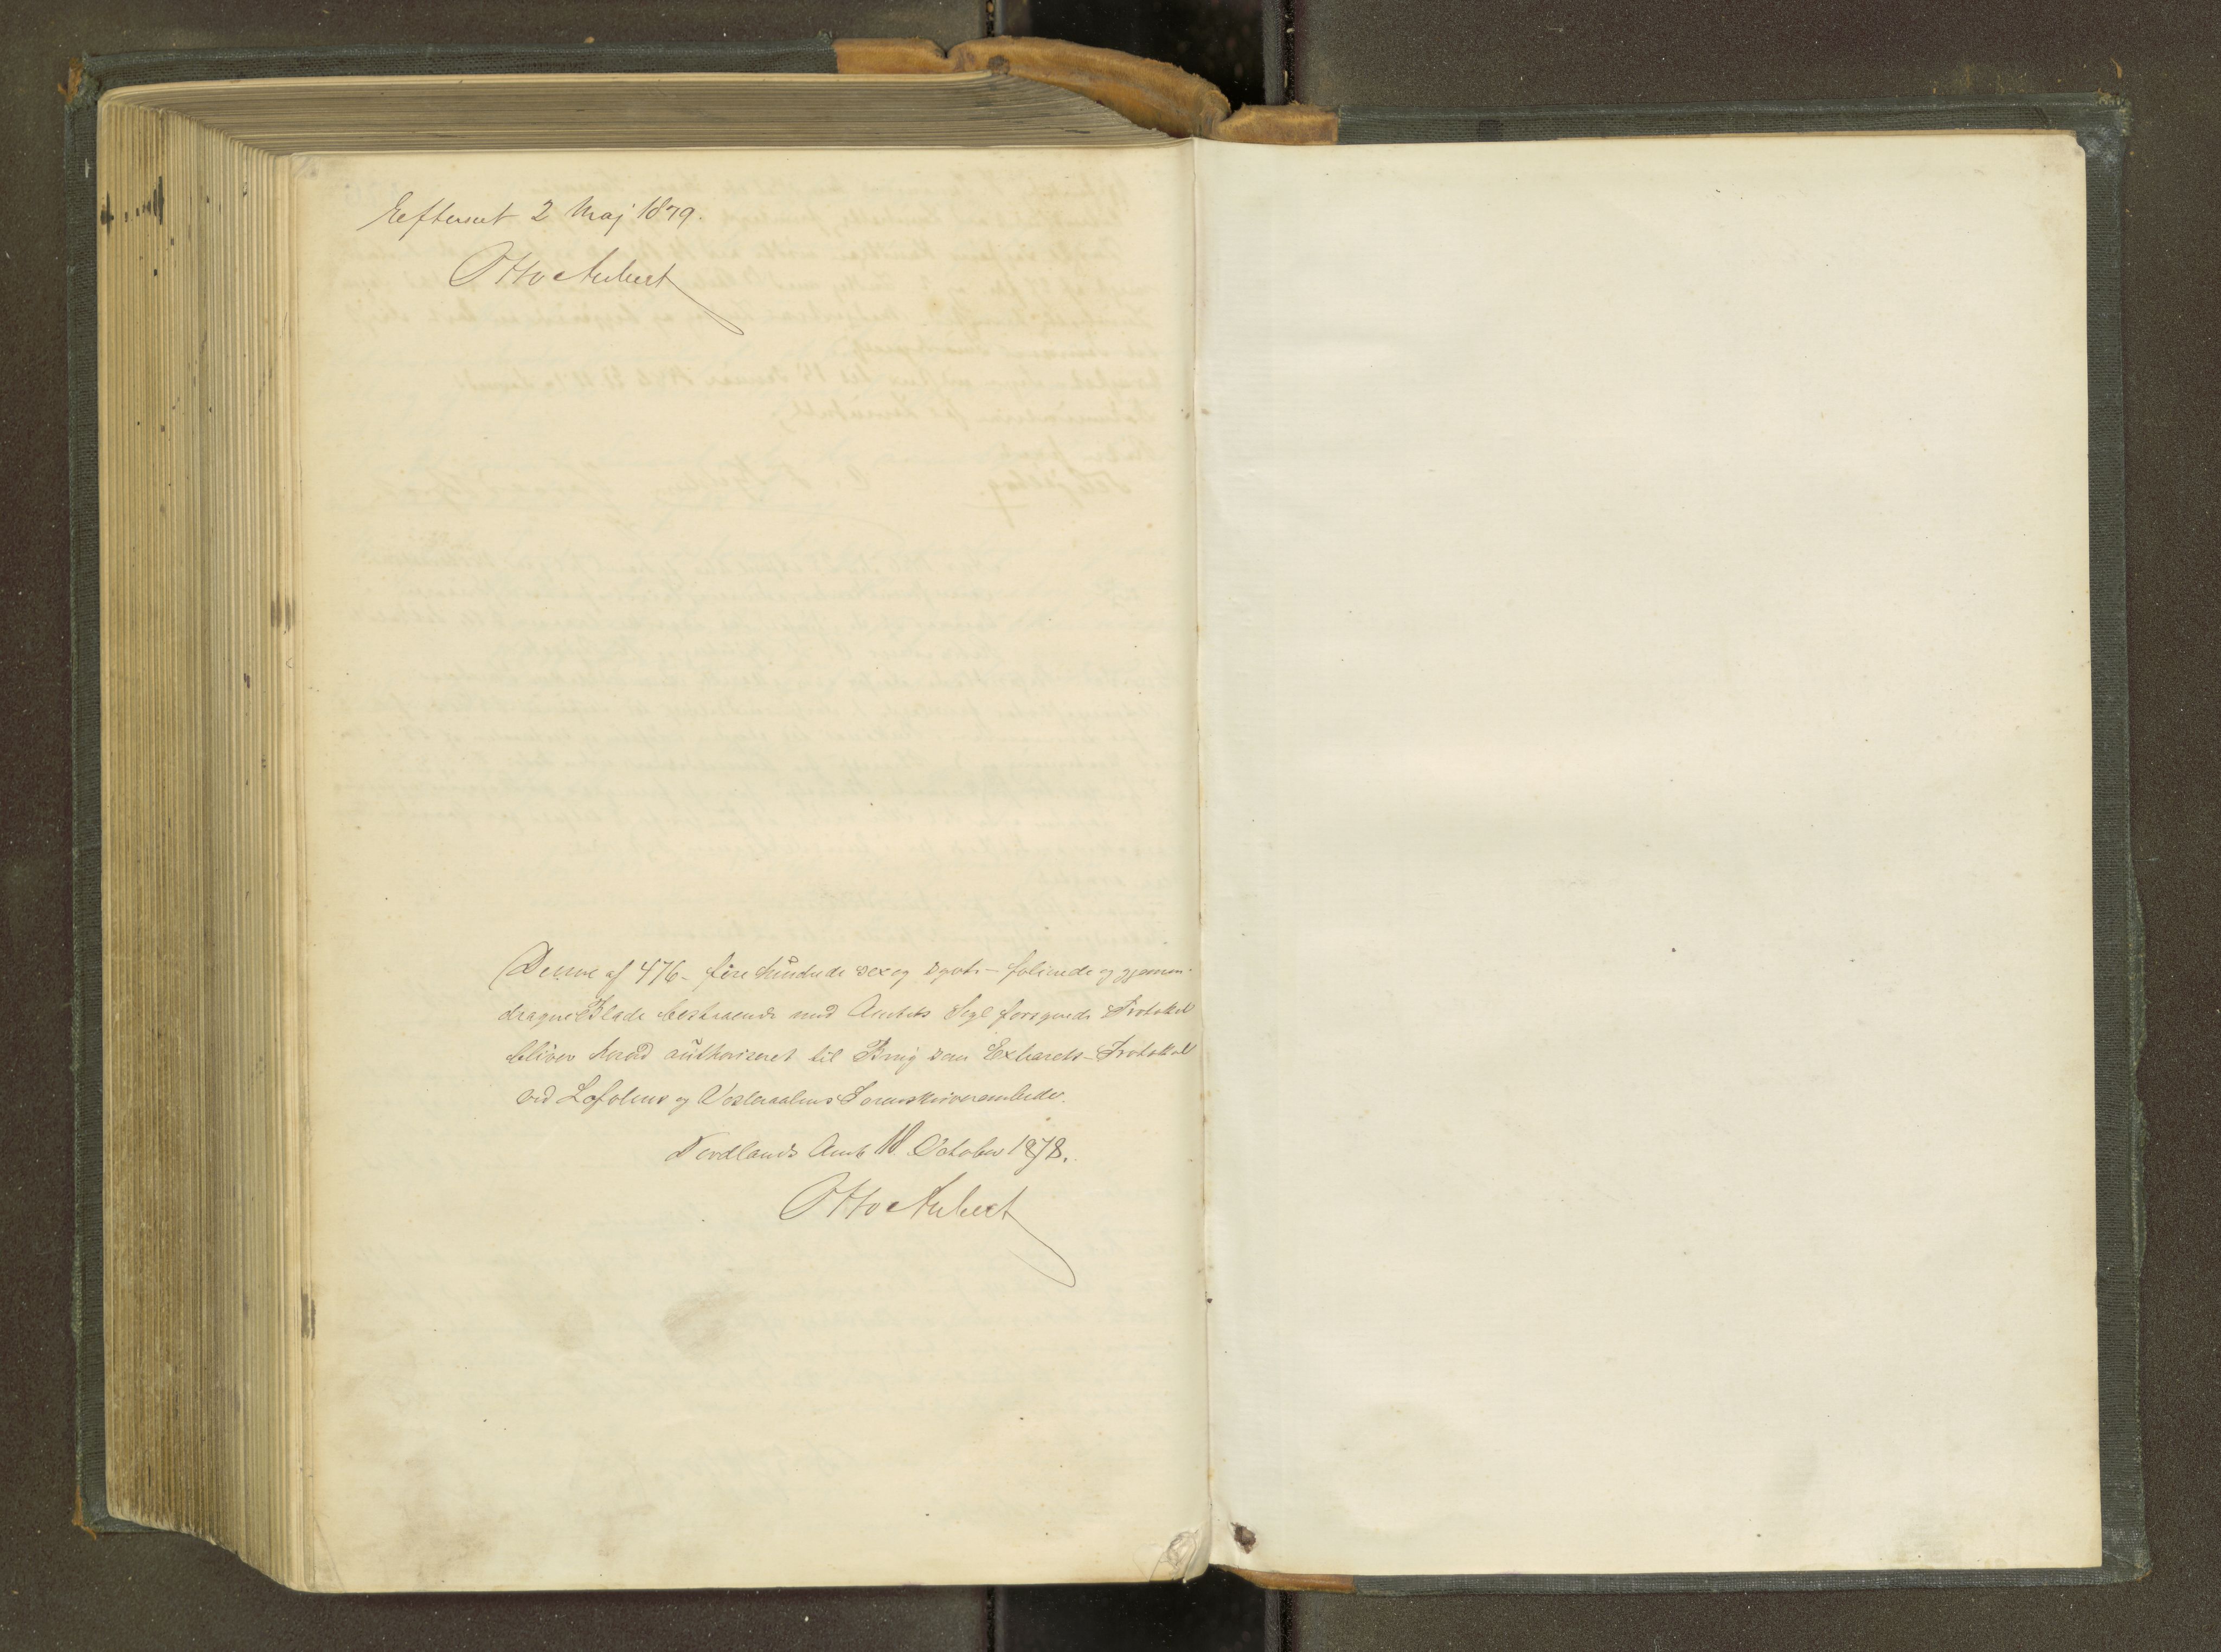 Efterseet 2 Maj 1879.
Otto Aubert
Denne af 476 - fire hundrede sex og sytti - folierede og gjennem-
dragne Blade bestaaende med Amtets Segl forsynede Protokol
bliver herved authoriseret til Brug som Extrarets-Protokol
ved Lofotens og Vesteraalens Sorenskriverembede.
Nordlands Amt 18 October 1878.
Otto Aubert